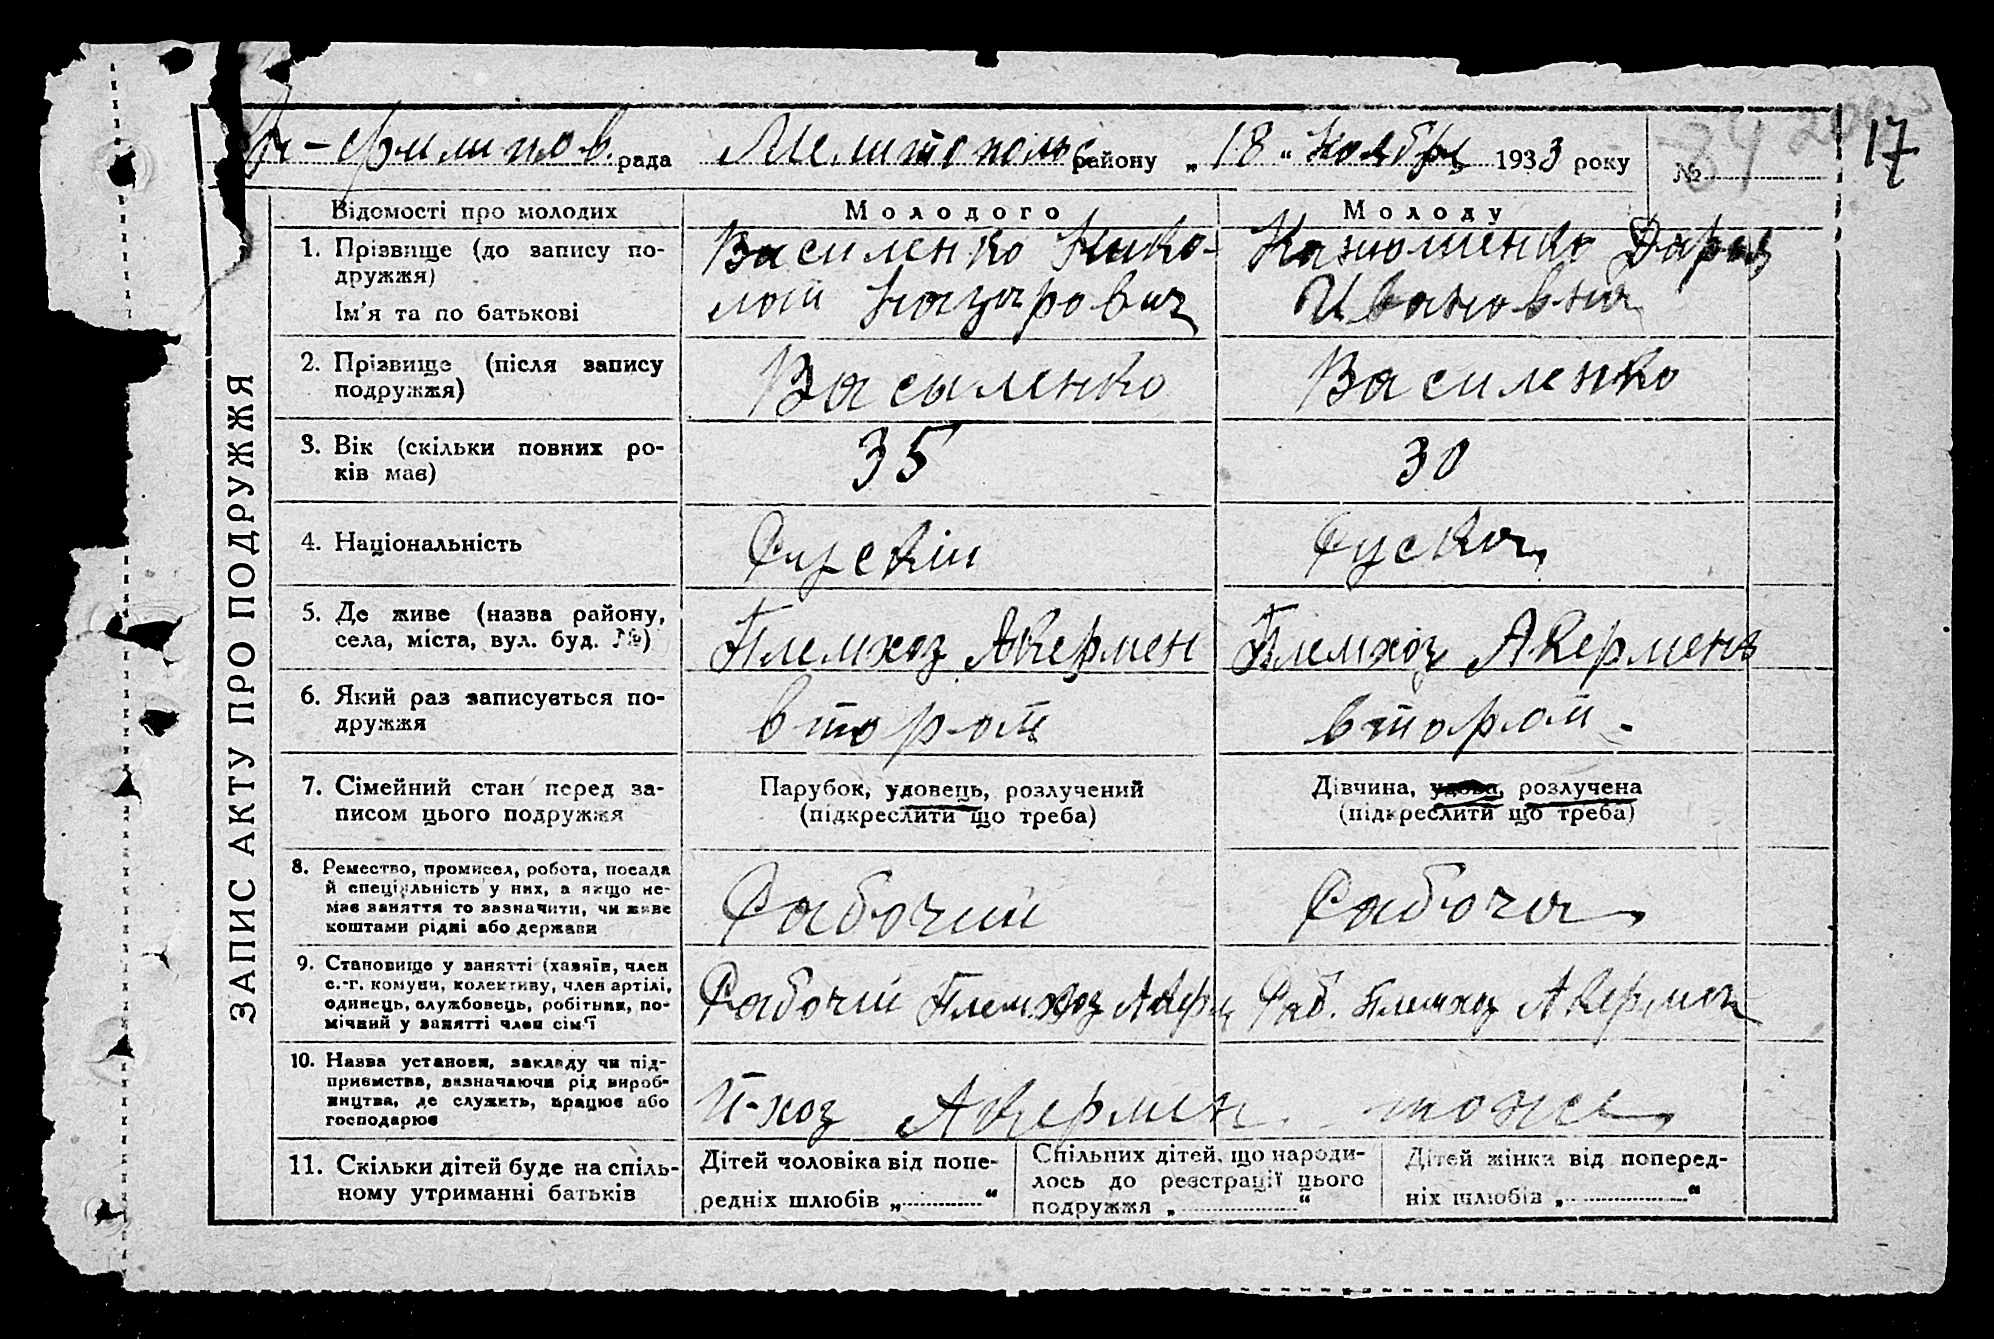 Н-Филипов. рада Мелитопольс району „18" Ноября 1933 року № 34 17
ЗАПИС АКТУ ПРО ПОДРУЖЖЯ
Відомості про молодих Молодого Молоду
1. Прізвище (до запису по-
дружжя)
Ім'я та по батькові
Василенко Нико-
лай Назарович
Канюшенко Дария
Ивановна
2. Прізвище (після запису
подружжя)
Васыленко
Василенко
3. Вік (скільки повних ро-
ків має)
35
30
4. Національність
Рускій
Руская
5. Де живе (назва району,
села, міста, вул. буд. №)
Племхоз Акермен
Племхоз Акермень
6. Який раз записується по-
дружжя
второй
второй -
7. Сімейний стан перед за-
писом цього подружжя
Парубок, удовець, розлучений
(підкреслити що треба)
Дівчина, удова, розлучена
(підкреслити що треба)
8. Ремество, промисел, робота, посада
й спеціяльність у них, а якщо не-
має заняття то зазначити, чи живе
коштами рідні або держави
Рабочий
Рабочая
9. Становище у занятті (хазяїн, член
с.-г. комуни, колективу, член артілі,
одинець, службовець, робітник, по-
мічний у занятті член сім'ї
Рабочий Племхоз Акерм
Раб. Племхоз Акермен
10. Назва установи, закладу чи під-
приємства, визначаючи рід вироб-
ництва, де служить, працює або
господарює
П-хоз Акермен.
тоже
11. Скільки дітей буде на спіль-
ному утриманні батьків
Дітей чоловіка від попе-
редніх шлюбів „............"
Спільних дітей, що народи-
лось до реєстрації цього
подружжя „............"
Дітей жінки від поперед-
ніх шлюбів „............"